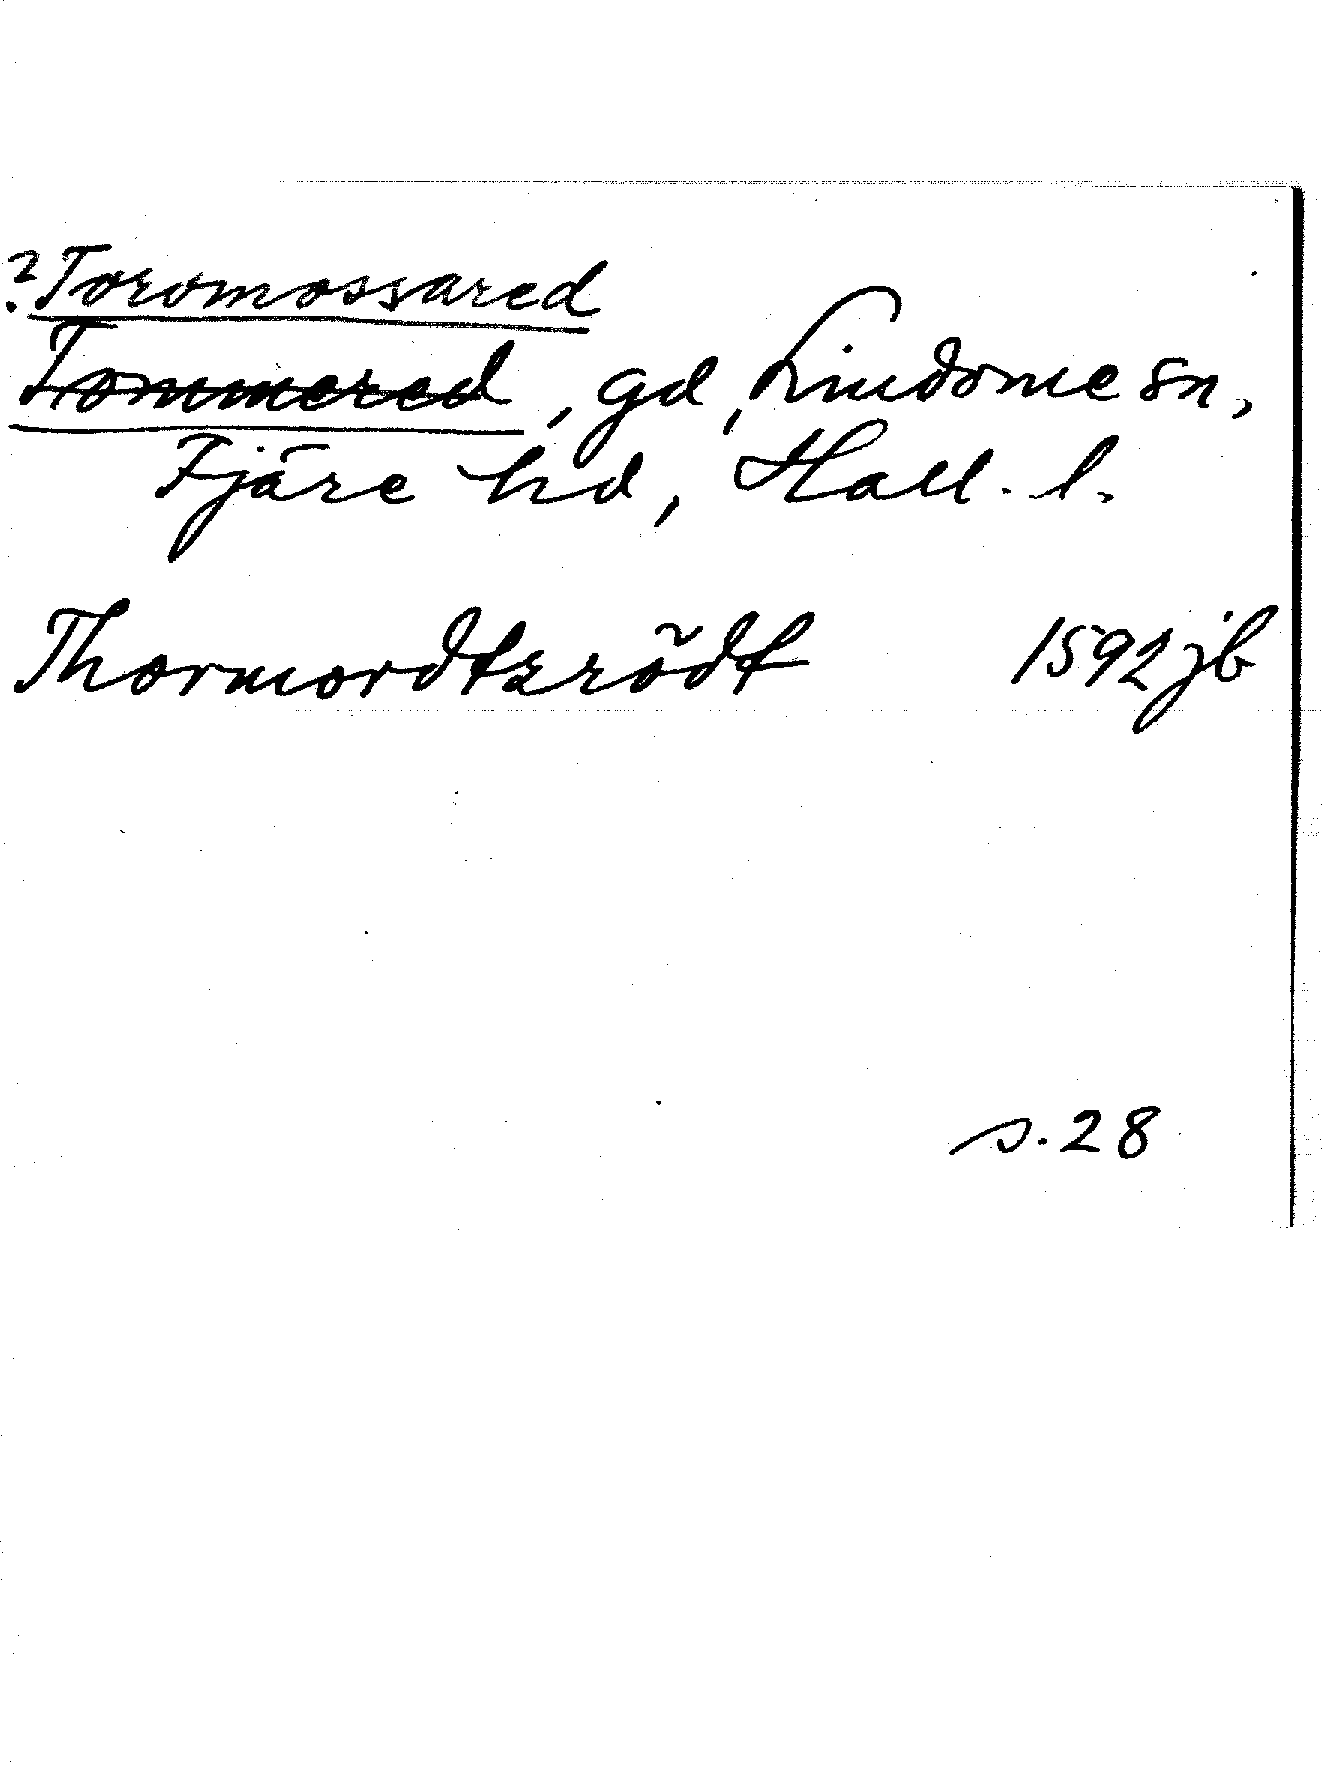 ?Toromossared
Tommered, gd, Lindome sn,
Fjäre hd, Hall. l.
Thormordtzrödt 1592 jb
s. 28